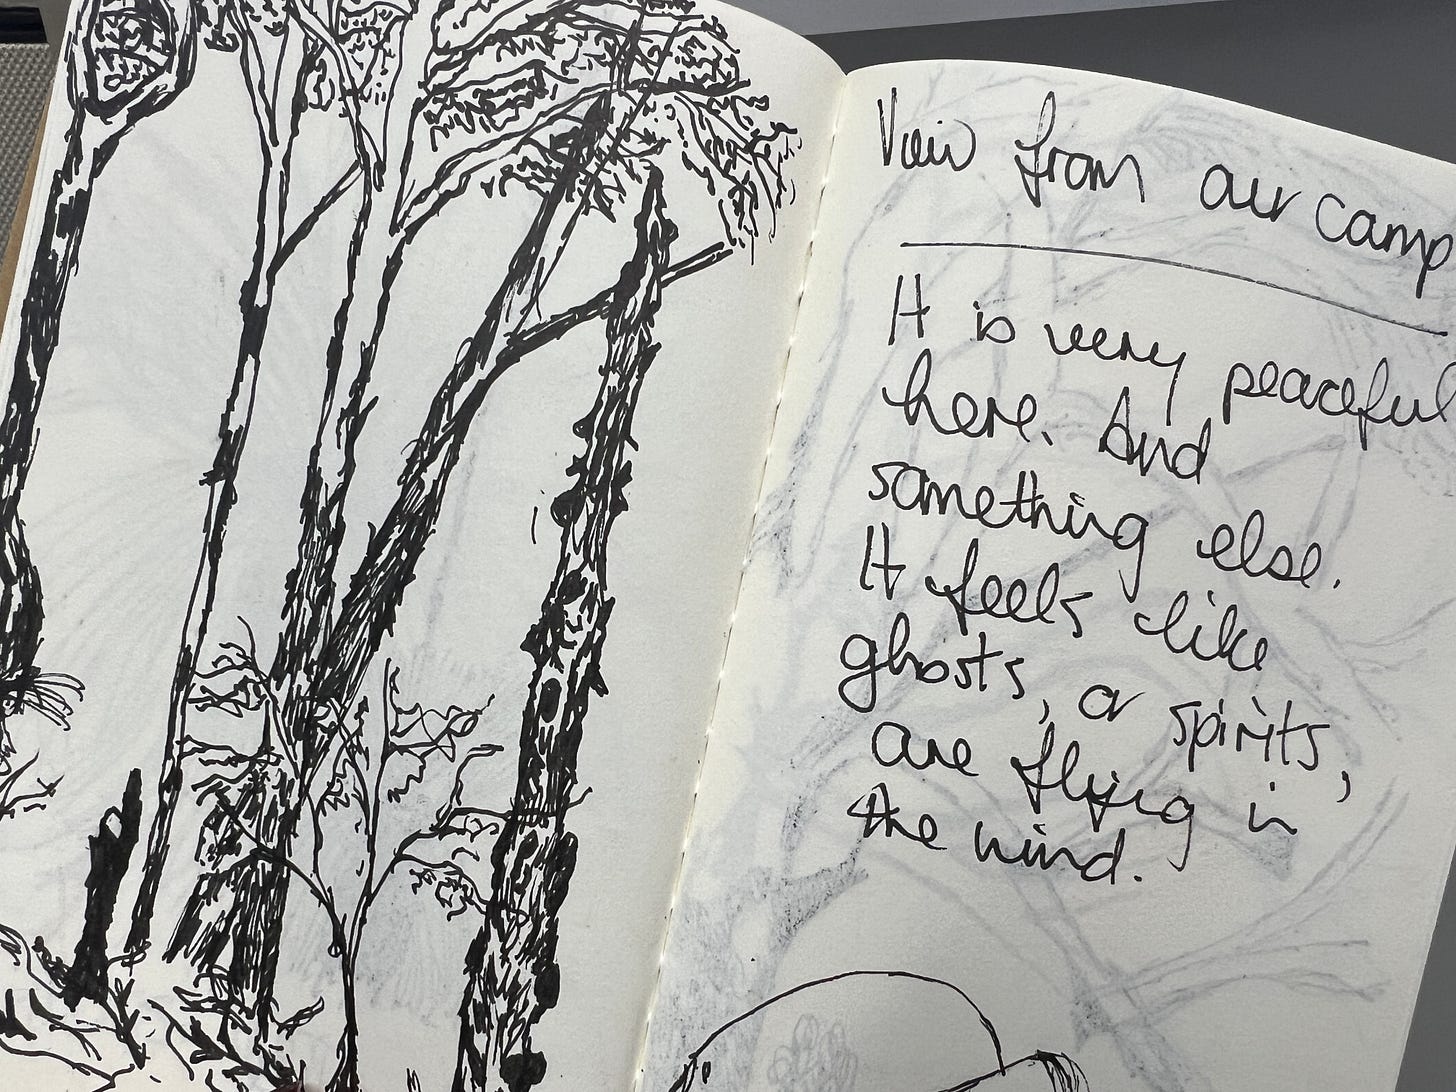 View from our camp
It is very peaceful
here. And
something else.
It feels like
ghosts, or spirits,
are flying in
the wind.